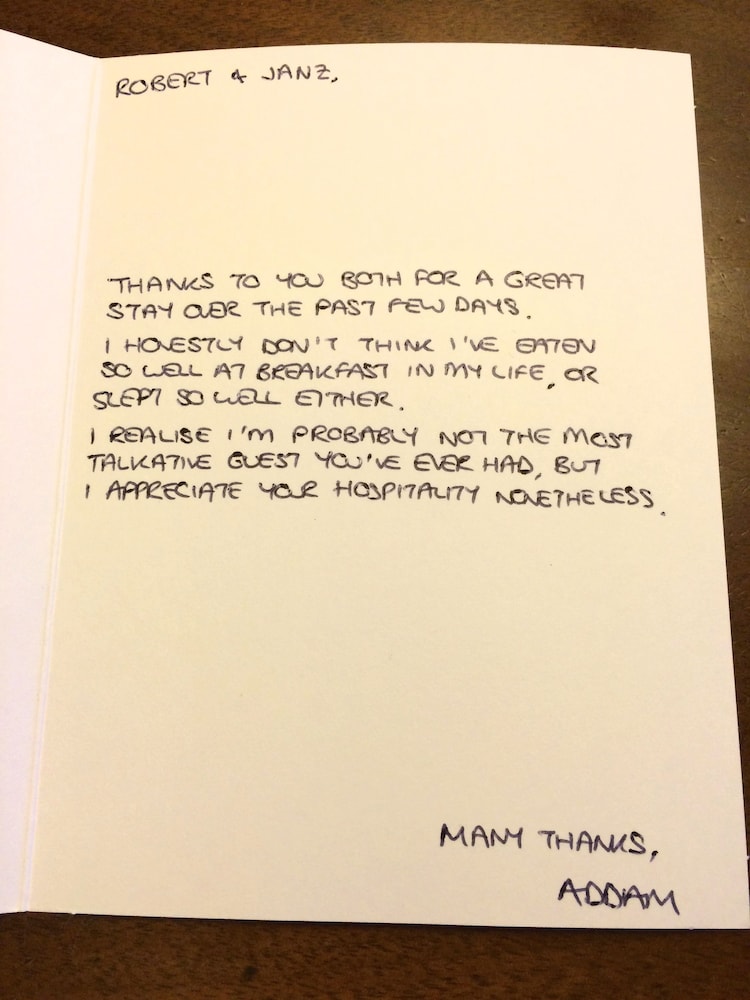 ROBERT & JANZ,
THANKS TO YOU BOTH FOR A GREAT
STAY OVER THE PAST FEW DAYS.
I HONESTLY DON'T THINK I'VE EATEN
SO WELL AT BREAKFAST IN MY LIFE, OR
SLEPT SO WELL EITHER.
I REALISE I'M PROBABLY NOT THE MOST
TALKATIVE GUEST YOU'VE EVER HAD, BUT
I APPRECIATE YOUR HOSPITALITY NONETHELESS.
MANY THANKS,
ADDAM